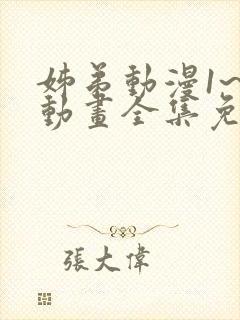 姊弟動漫1~
動畫全集免
張大偉